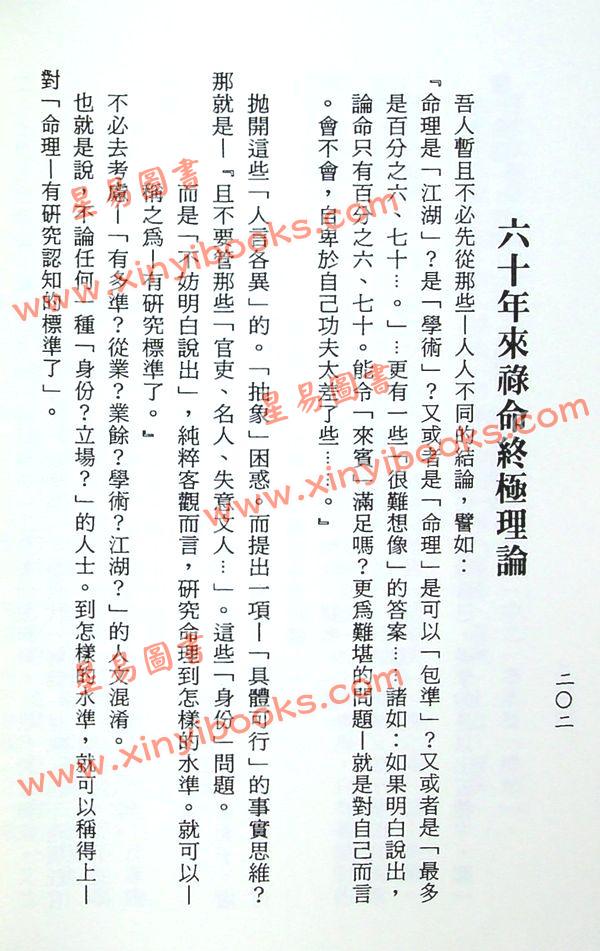 六十年來祿命終極理論
二〇二
吾人暫且不必先從那些—人人不同的結論，譬如：
『命理是「江湖」？是「學術」？又或者是「命理」是可以「包準」？又或者是「最多
是百分之六、七十…。」…更有一些「很難想像」的答案……諸如：如果明白說出，
論命只有百分之六、七十。能令「來賓」滿足嗎？更爲難堪的問題—就是對自己而言
。會不會，自卑於自己功夫太差了些……。』
拋開這些「人言各異」的。「抽象」困惑。而提出一項—「具體可行」的事實思維？
那就是—『且不要管那些「官吏、名人、失意文人…」。這些「身份」問題。
而是「不妨明白說出」，純粹客觀而言，研究命理到怎樣的水準。就可以—
稱之爲—有研究標準了。』
不必去考慮—「有多準？從業？業餘？學術？江湖？」的人文混淆。
也就是說，不論任何一種「身份？立場？」的人士。到怎樣的水準，就可以稱得上—
對「命理—有研究認知的標準了」。
星易圖書
www.xinyibooks.com
星易圖書
www.xinyibooks.com
星易圖書
www.xinyibooks.com